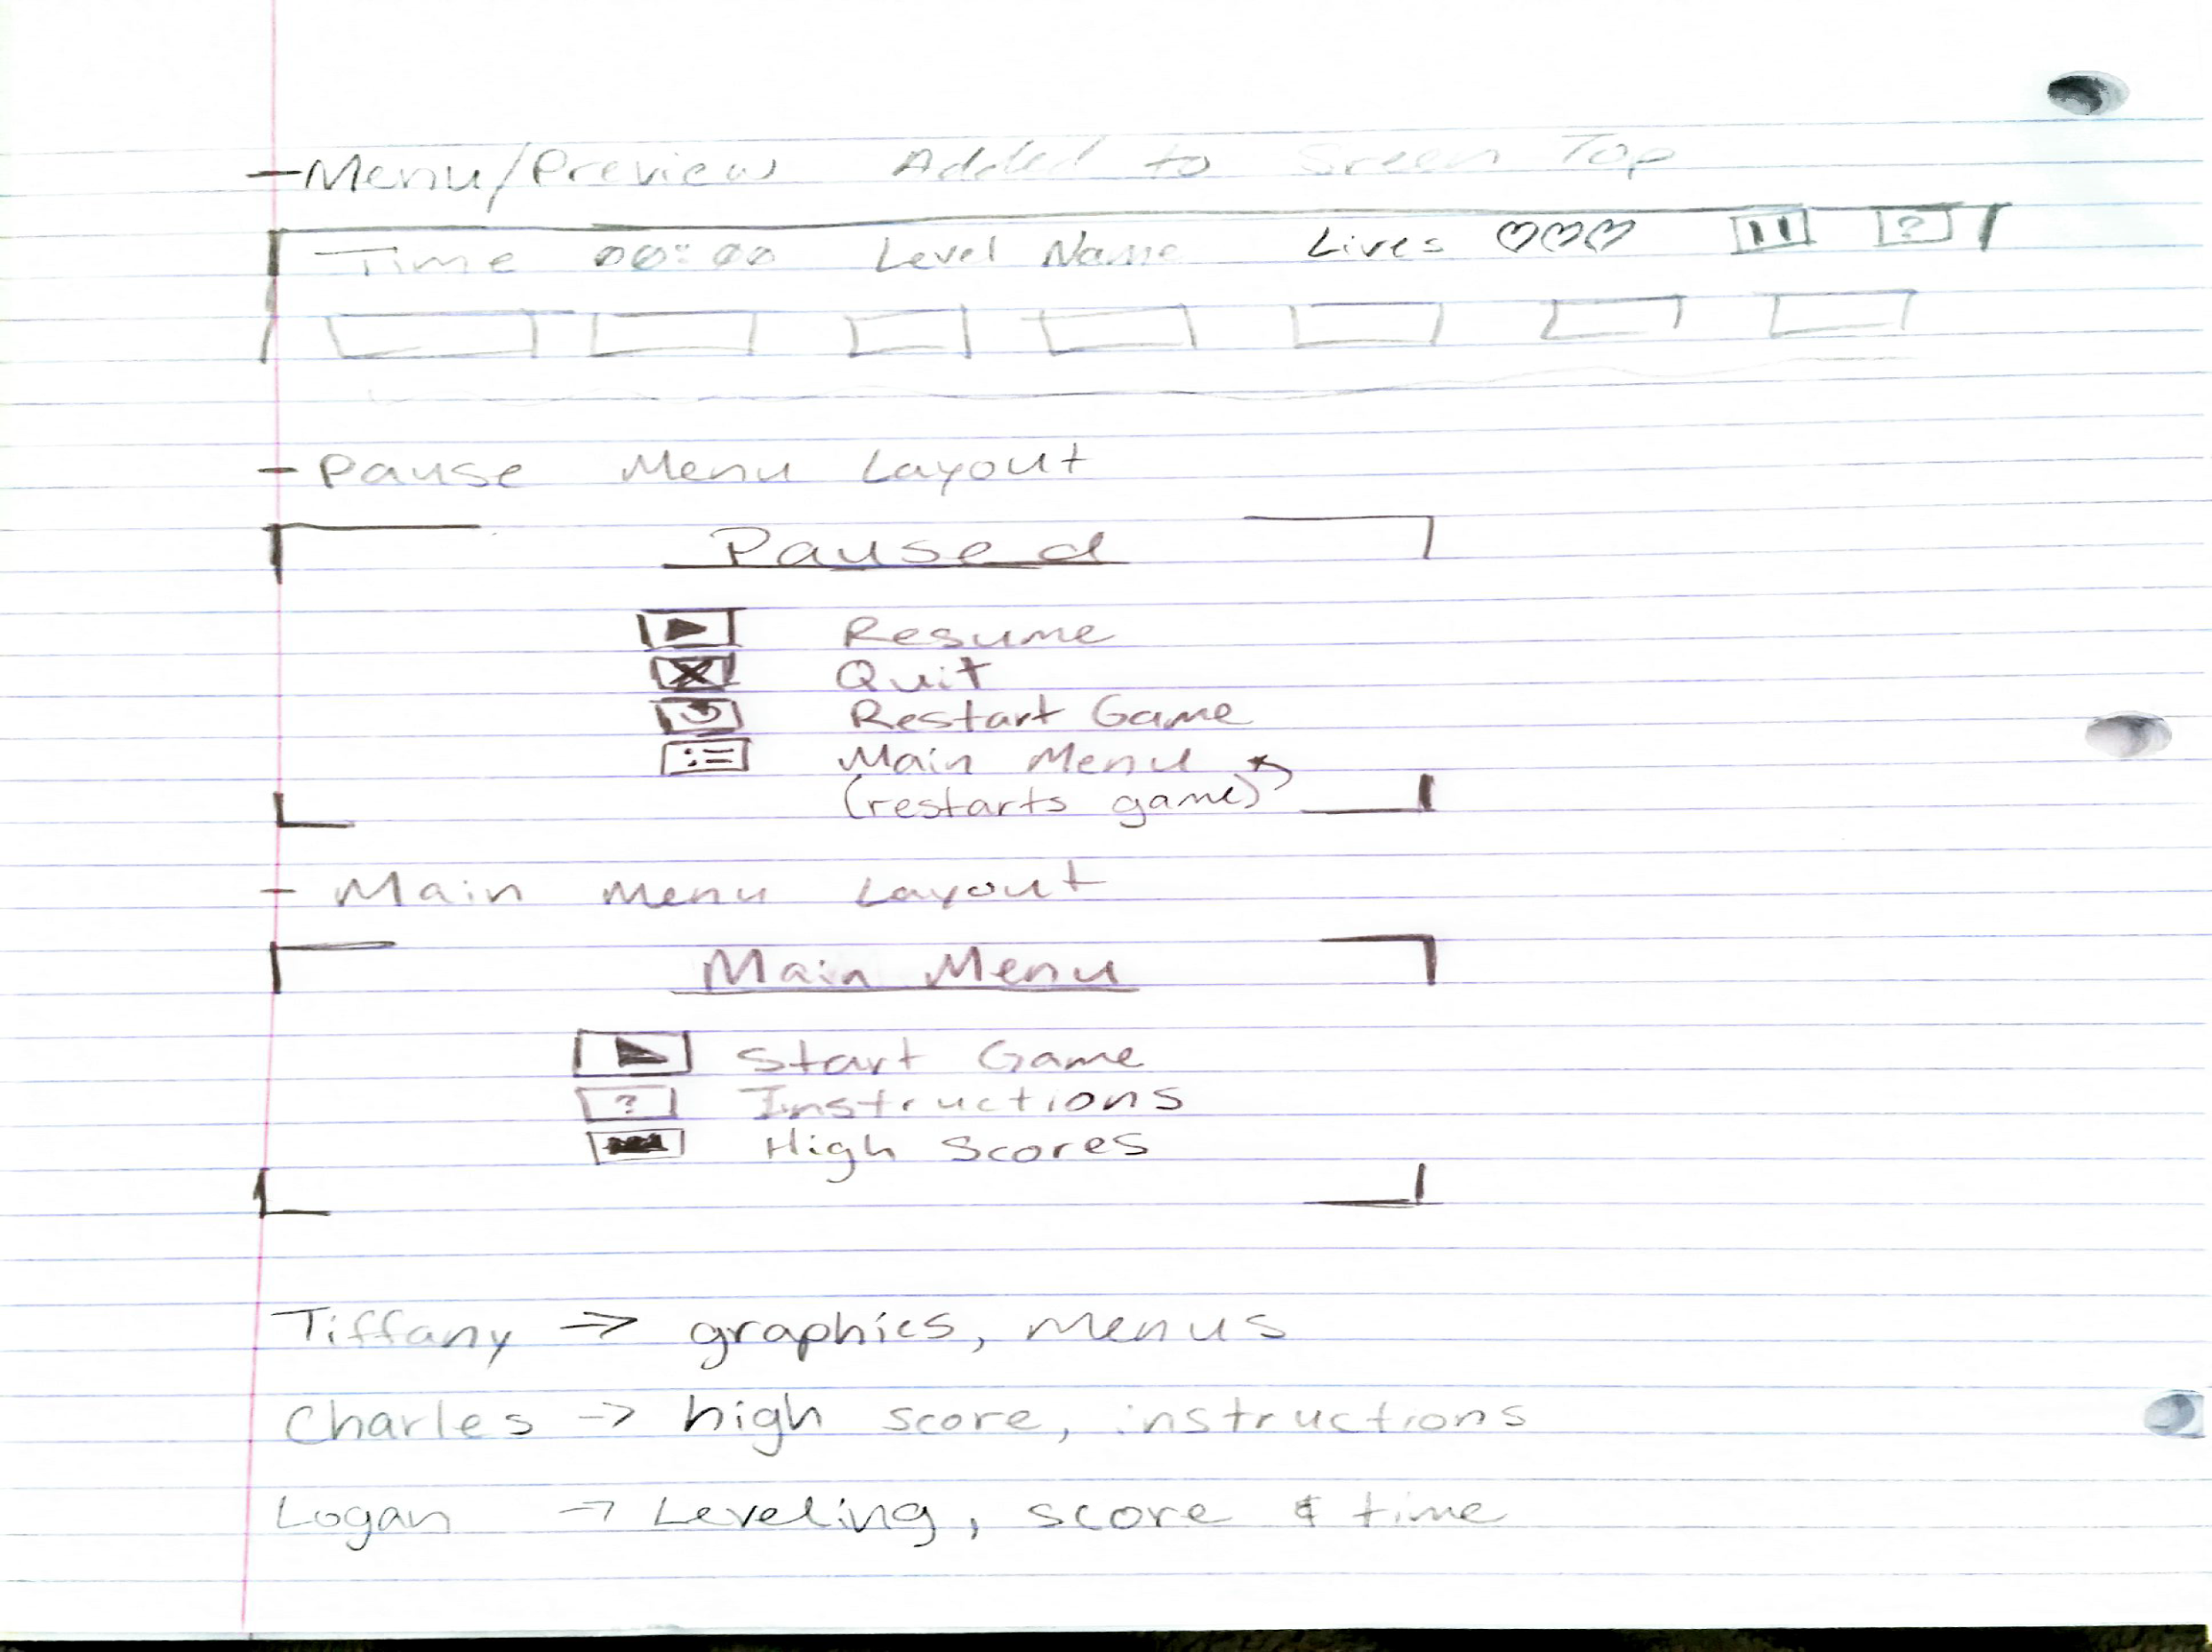 -Menu/Preview Added to Sreen Top
Time 00:00 Level Name Lives ♡♡♡ ?
- Pause Menu Layout
Paused
Resume
Quit
Restart Game
Main Menu
(restarts game)
- Main Menu Layout
Main Menu
Start Game
? Instructions
High Scores
Tiffany => graphics, menus
Charles -> high score, instructions
Logan -> Leveling, score & time